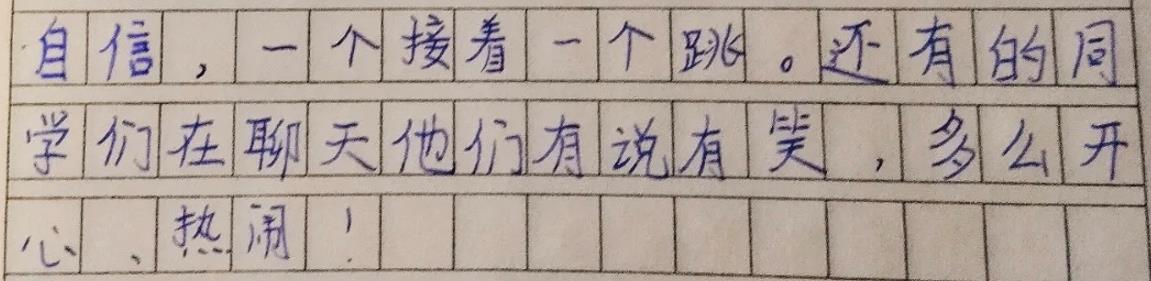 自信，一个接着一个跳。还有的同
学们在聊天他们有说有笑，多么开
心、热闹！